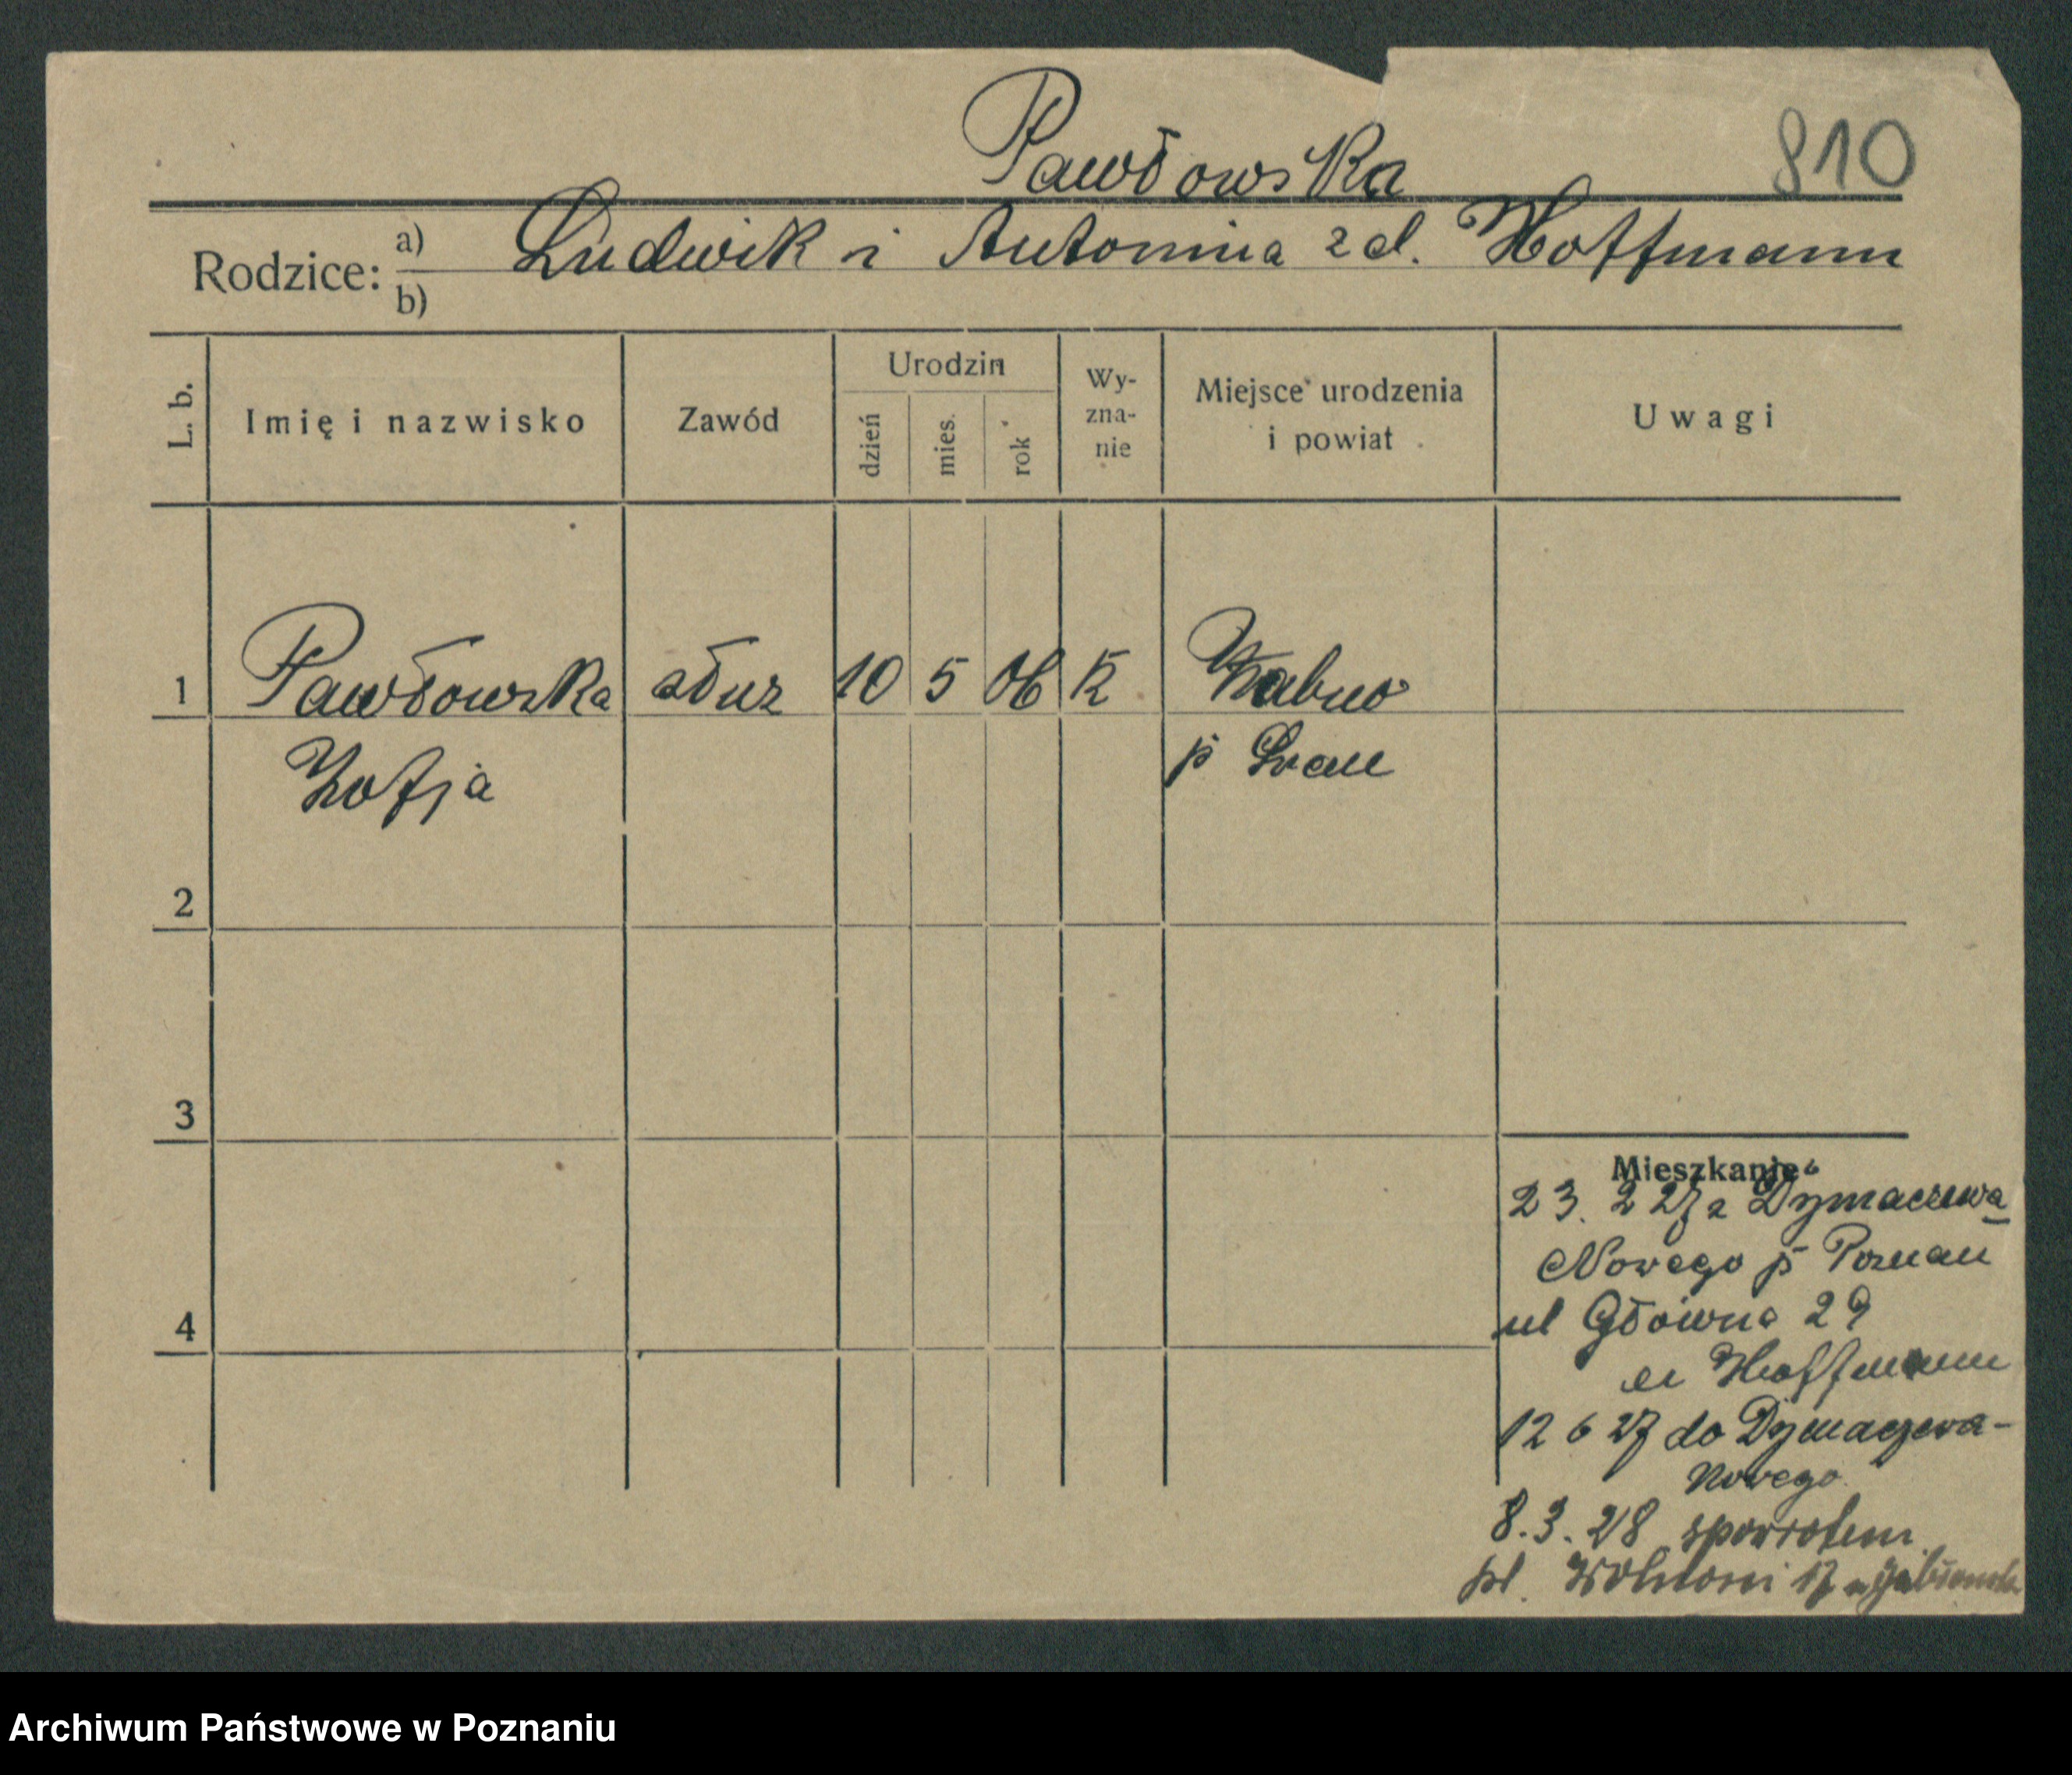 Pawłowska
810
Rodzice: a) Ludwik i Antonina z d. Hoffmann
b)
L. b.
Imię i nazwisko
Zawód
Urodzin
dzień
mies.
rok
Wy-
zna-
nie
Miejsce urodzenia
i powiat
Uwagi
1 Pawłowska służ 10 5 06 K Żabno
Zofja p Śrem
2
3
4
Mieszkanie
23. 2 27 z Dymaczewa
Nowego p Poznań
ul Główna 29
u Hoffmann
12 6 27 do Dymaczewa-
Nowego
8. 3. 28 spowrotem
pl. Wolności 17 u
Archiwum Państwowe w Poznaniu